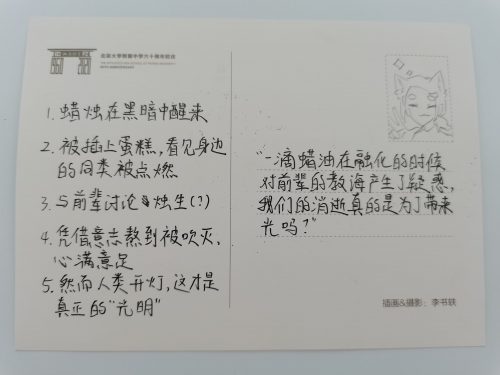 北京大学附属中学六十周年校庆
1. 蜡烛在黑暗中醒来
2. 被插上蛋糕，看见身边
的同类被点燃
3. 与前辈讨论烛生(?)
4. 凭借意志熬到被吹灭，
心满意足
5. 然而人类开灯，这才是
真正的“光明”
“一滴蜡油在融化的时候
对前辈的教诲产生了疑惑，
我们的消逝真的是为了带来
光吗？”
插画&摄影：李书轶